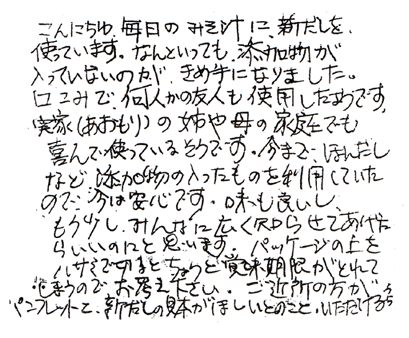 こんにちは、毎日のみそ汁に、新だしを、
使っています。なんといっても、添加物が
入っていないのが、きめ手になりました。
口コミで、何人かの友人も使用したようです。
実家(あおもり)の姉や母の家庭でも
喜んで使っているそうです。今まで、ほんだし
など添加物の入ったものを利用していた
ので、今は安心です。味も良いし、
もう少し、みんなに広く知らせてあげた
らいいのにと思います。パッケージの上を
ハサミで切るとちょうど賞味期限がとれて
しまうのでお考え下さい。ご近所の方が
パンフレットと、新だしの見本がほしいとのこと、いただけるかしら